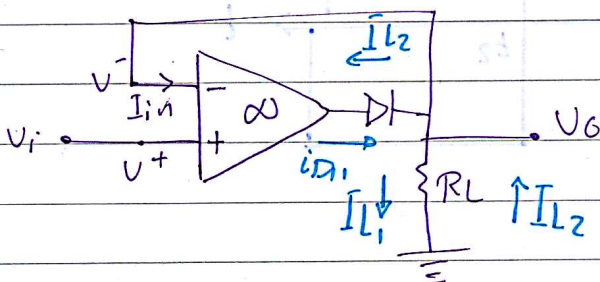 IL2
V-
Iin
-
∞
Vi
V+
+
iD1
Vo
IL1
RL
IL2